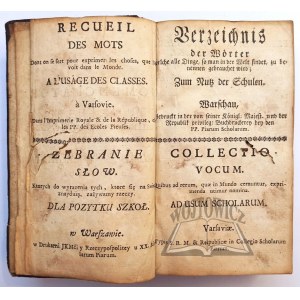 RECUEIL
DES MOTS
Dont on se sert pour exprimer les choses, que
voit dans le Monde.
A L'USAGE DES CLASSES.
à Varsovie.
Dans l'Imprimerie Royale & de la République,
les PP. des Ecoles Pieuses.
ZEBRANIE
SŁOW.
Ktorych do wyrażenia tych, ktore się na
znayduią, zażywamy rzeczy.
DLA POZYTKU SZKOŁ.
w Warszawie.
w Drukarni JKMci y Rzeczypospolitey u XX.
larum Piarum.
Verzeichnis
der Wörter
welche alle Dinge, so man in der Welt findet, zu be-
nennen gebrauchet wird;
Zum Nutz der Schulen.
Warschau,
gedruckt in der von seiner Königl. Majest. und der
Republik privileg. Buchdruckerey bey den
PP. Piarum Scholarum.
COLLECTIO
VOCUM.
quibus ad rerum, quæ in Mundo cernuntur, expri-
menda utimur nomina.
AD USUM SCHOLARUM.
Varsaviæ
S. R. M. & Reipublicæ in Collegio Scholarum